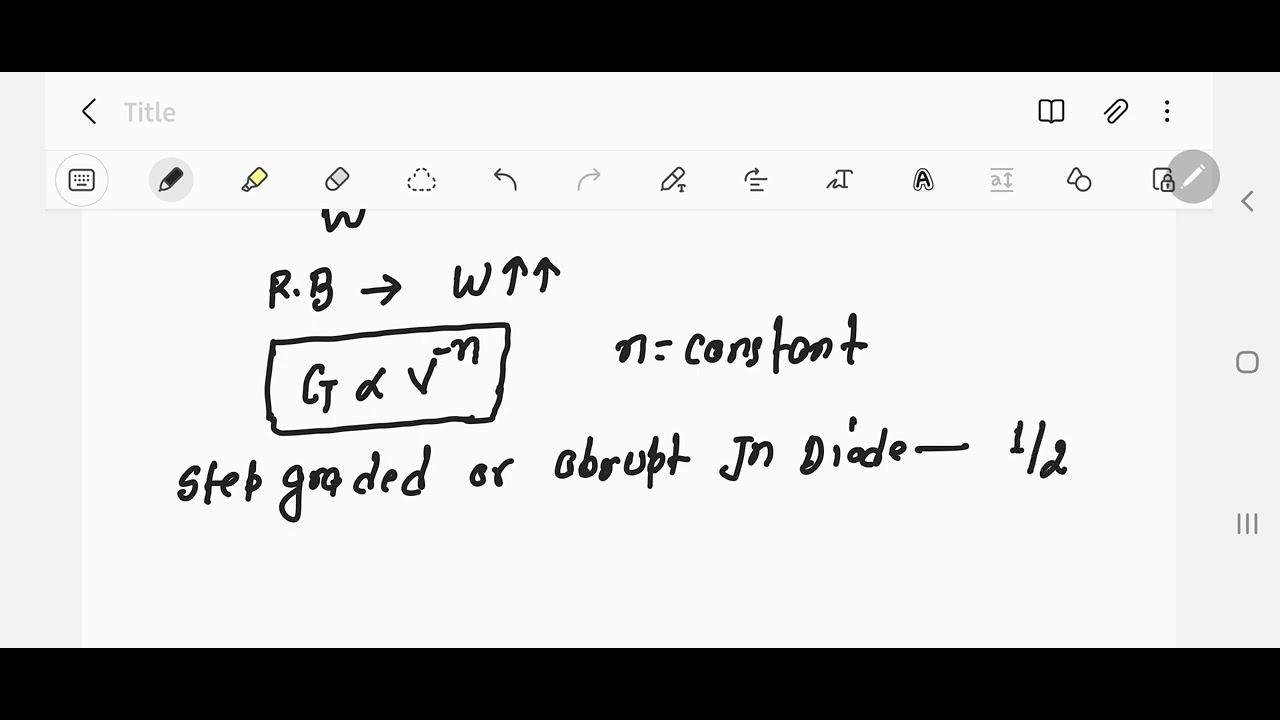 Title
W
R.B → W↑↑
C_T ∝ V^-n n = constant
Step graded or abrupt Jn Diode — 1/2